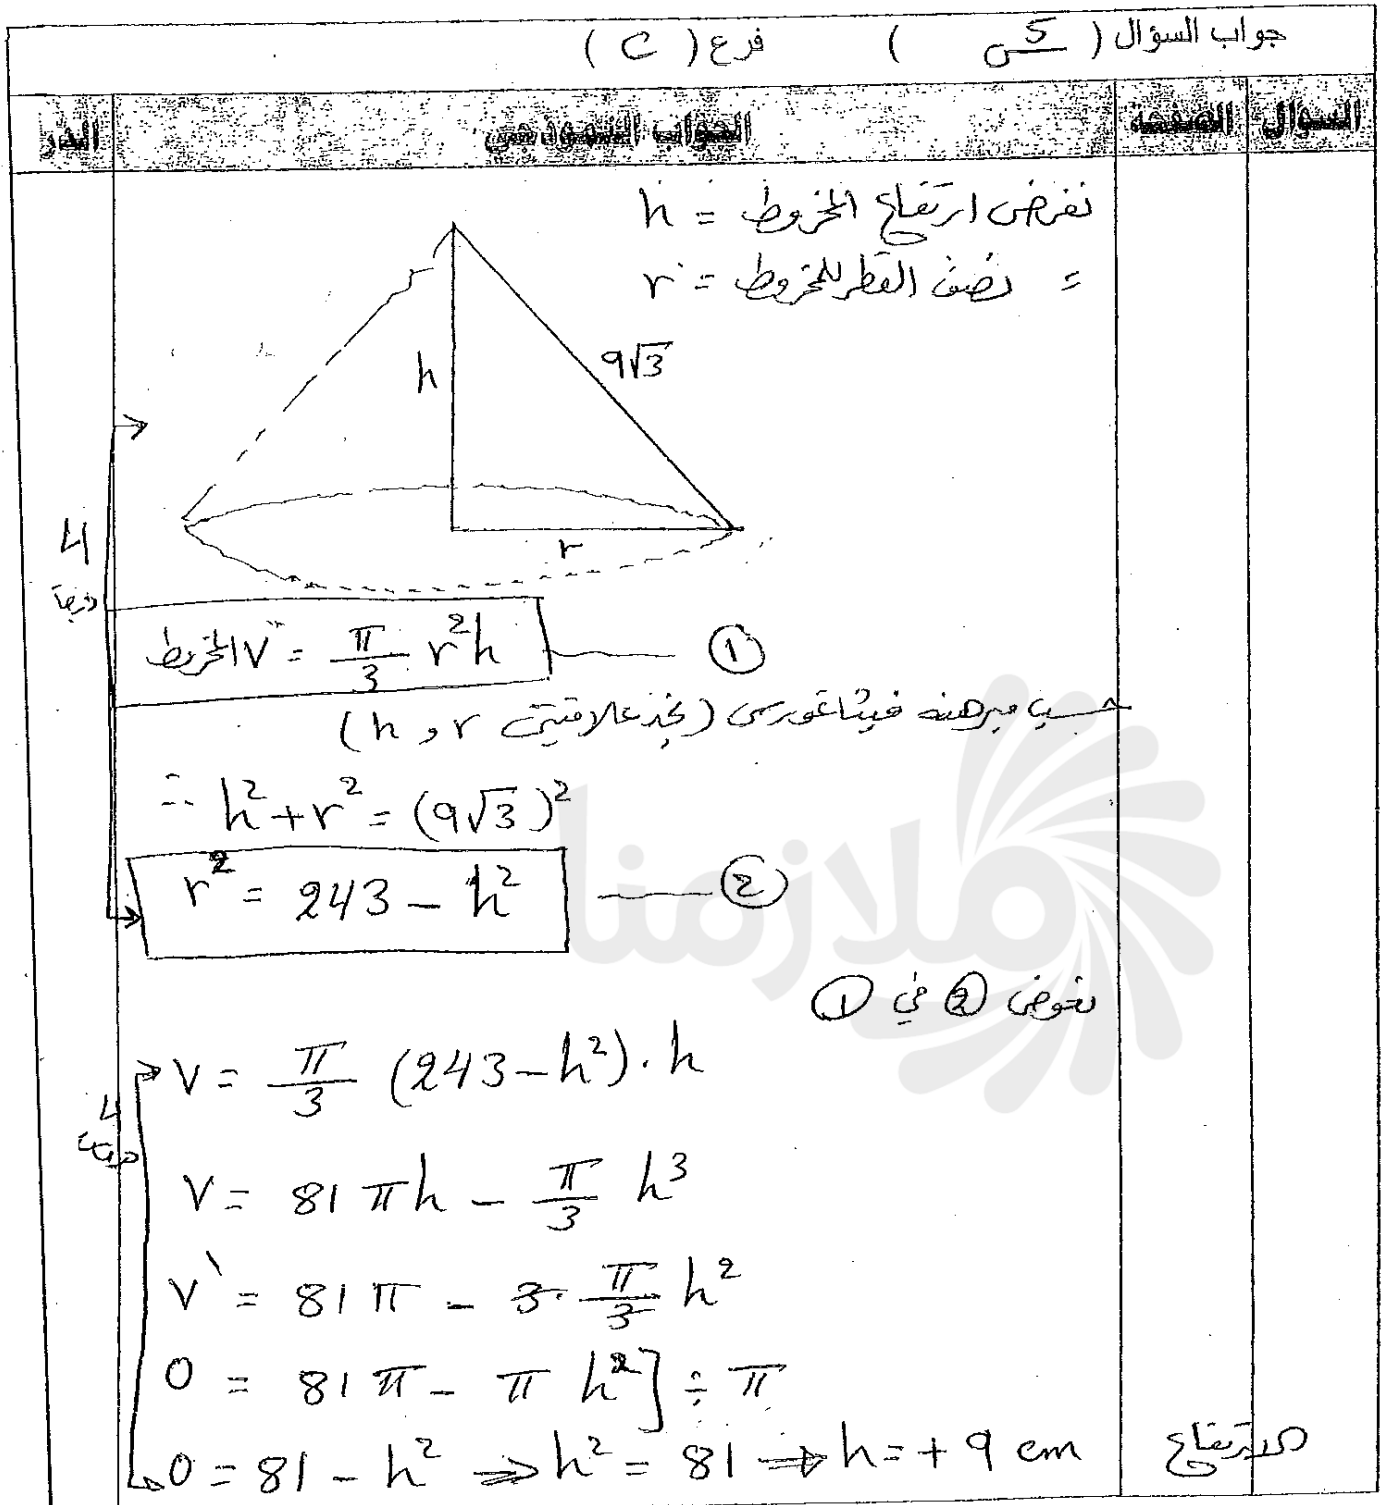 جواب السؤال ( س5 ) فرع ( C )
السؤال الصفحة الجواب النموذجي الدر
نفرض ارتفاع المخروط = h
= نصف القطر للمخروط = r
h
9√3
r
4
V المخروط = π/3 r²h ——— ①
حسب مبرهنة فيثاغورس (نجد علاقة بين r و h)
∴ h² + r² = (9√3)²
r² = 243 - h² ——— ②
ملازمنا
نعوض ② في ①
V = π/3 (243 - h²) . h
4
V = 81 π h - π/3 h³
V` = 81 π - 3 . π/3 h²
0 = 81 π - π h² ] ÷ π
0 = 81 - h² ⇒ h² = 81 ⇒ h = + 9 cm الارتفاع